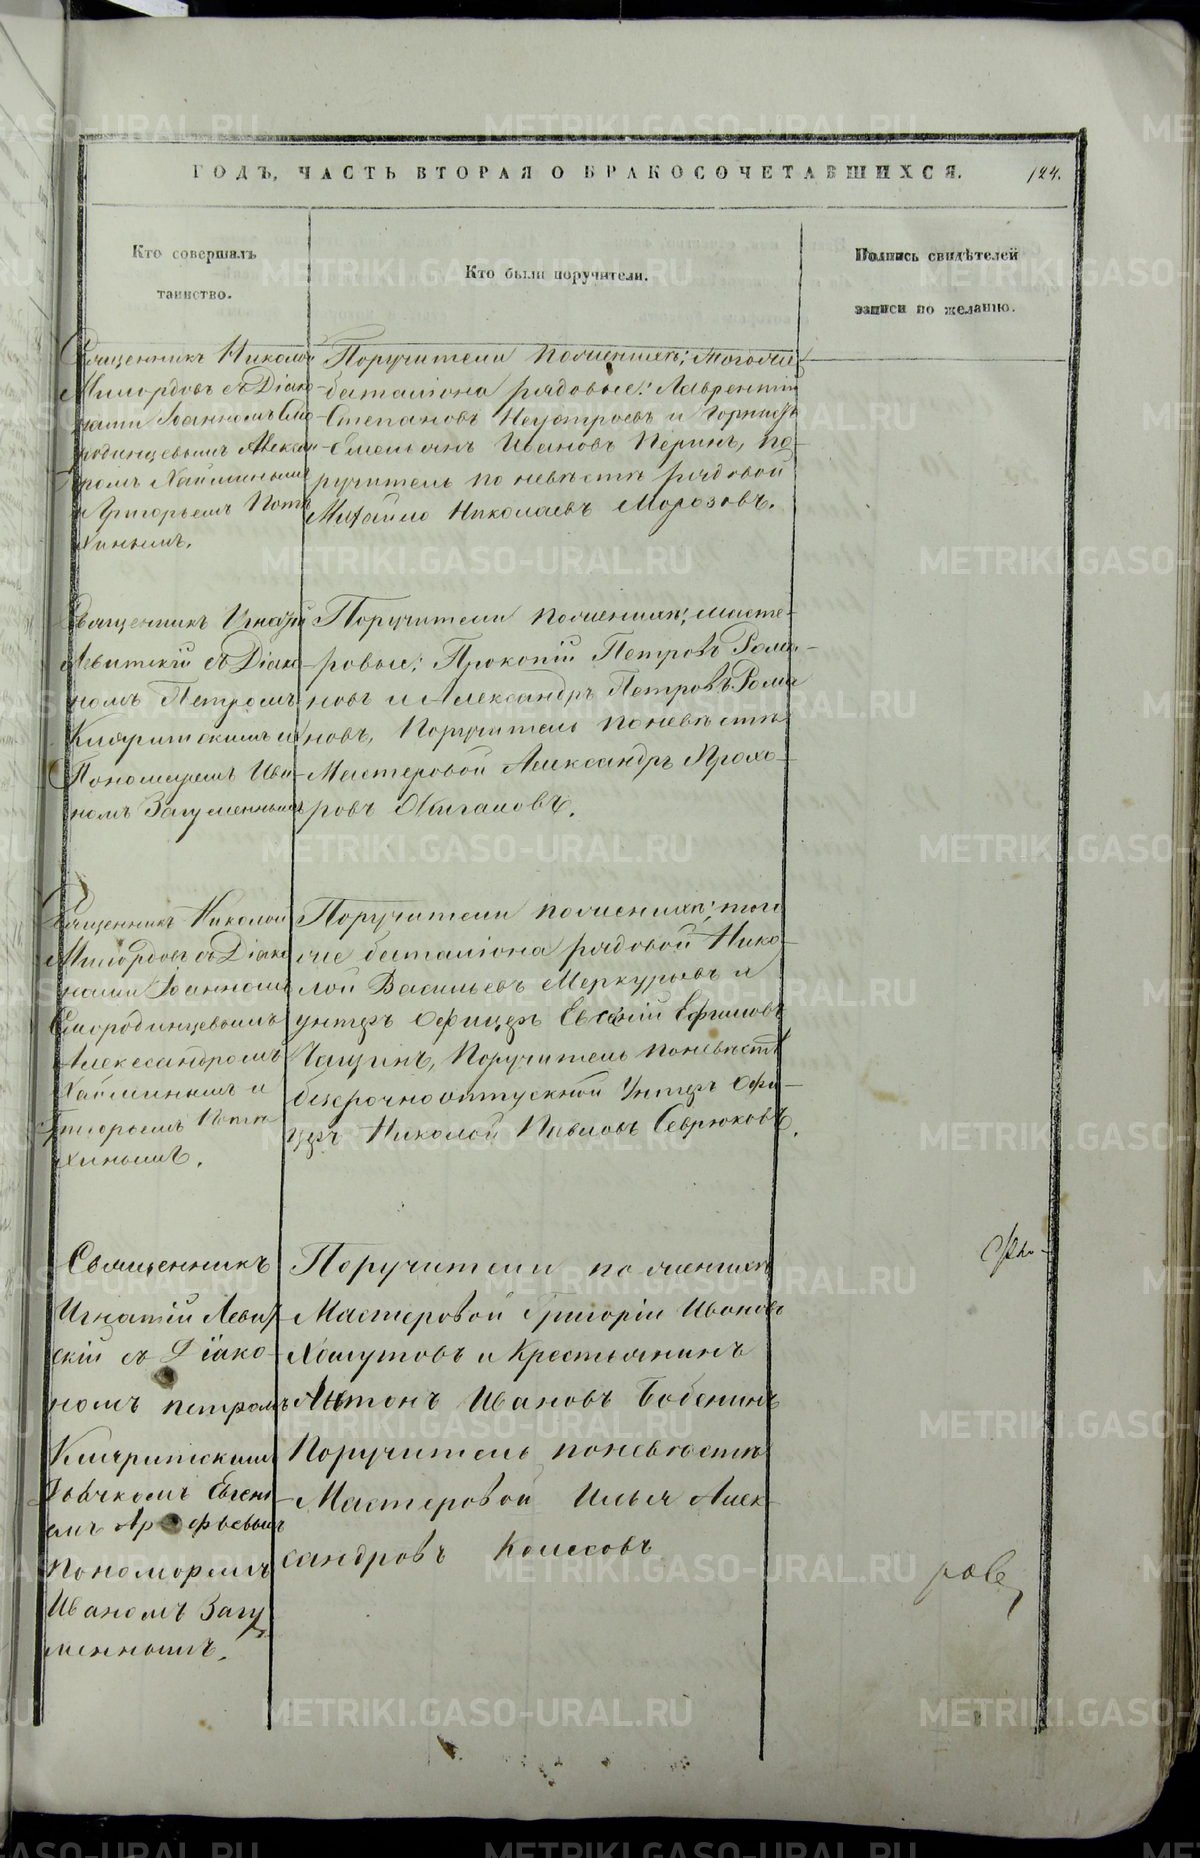 ГОДЪ, ЧАСТЬ ВТОРАЯ О БРАКОСОЧЕТАВШИХСЯ.
124.
Кто совершалъ
таинство.
Кто были поручители.
Подпись свидѣтелей
записи по желанію.
Священникъ Николай
съ Діако-
нами Іоанномъ Смо-
родинцевымъ Алексан-
дромъ
и Григорьемъ Пота
хинымъ.
Поручители по женихѣ;
баталіона рядовые: Лаврентій
Степановъ Неустроевъ и
Емельянъ Ивановъ Перинъ, по-
ручитель по невѣстѣ рядовой
Михайло Николаевъ Морозовъ.
Священникъ Игнатій
Левитскій съ Діако-
номъ Петромъ
Пономаремъ Ива-
номъ Загуменнымъ
Поручители по женихѣ; масте-
ровые: Прокопій Петровъ Рома-
новъ и Александръ Петровъ Рома
новъ, Поручитель по невѣстѣ
Мастеровой Александръ Прохо-
ровъ
Священникъ Николай
съ Діако
нами Іоанномъ
Смородинцевымъ
Александромъ
и
Григорьемъ Пота
хинымъ.
Поручители по женихѣ; того
же баталіона рядовой Нико-
лай Васильевъ Меркурьевъ и
унтеръ офицеръ Евсѣвій Ефимовъ
Поручитель по невѣстѣ
безсрочноотпускной Унтеръ Офи-
церъ Николай Павловъ Севрюковъ.
Священникъ
Игнатій Левит
скій съ Діако-
номъ петромъ
Дьячкомъ Евгені
емъ
Пономоремъ
Иваномъ Загу
меннымъ.
Поручители по женихѣ
Мастеровой Григорій Ивановъ
Халутовъ и Крестьянинъ
Антонъ Ивановъ Бабенинъ
Поручитель по невѣстѣ
Мастеровой Илья Алек-
сандровъ
METRIKI.GASO-URAL.RU